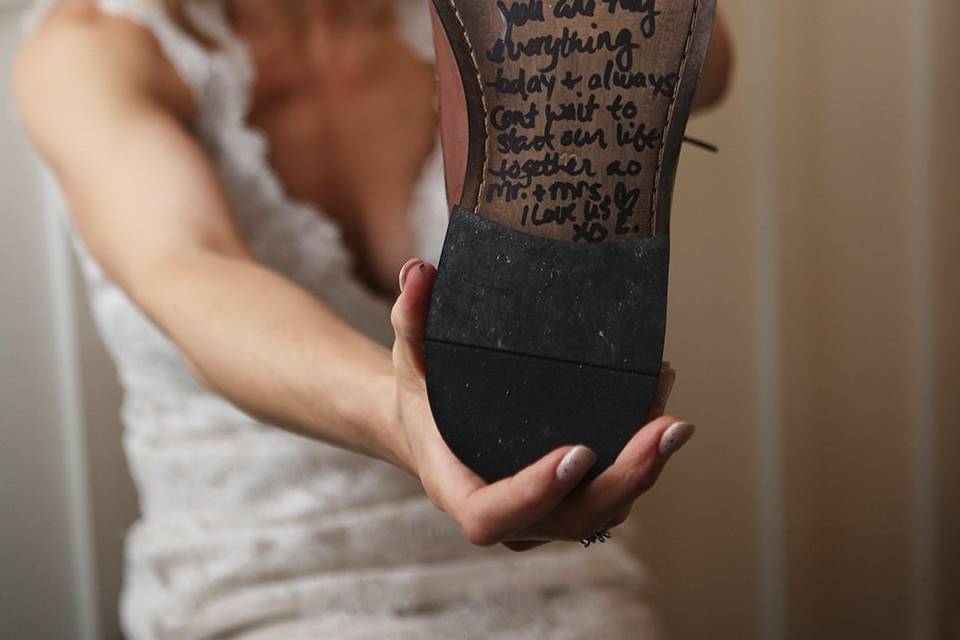 you are my
everything
today + always
Cant wait to
start our life
together as
mr. + mrs. ♡
I love us
XO E.